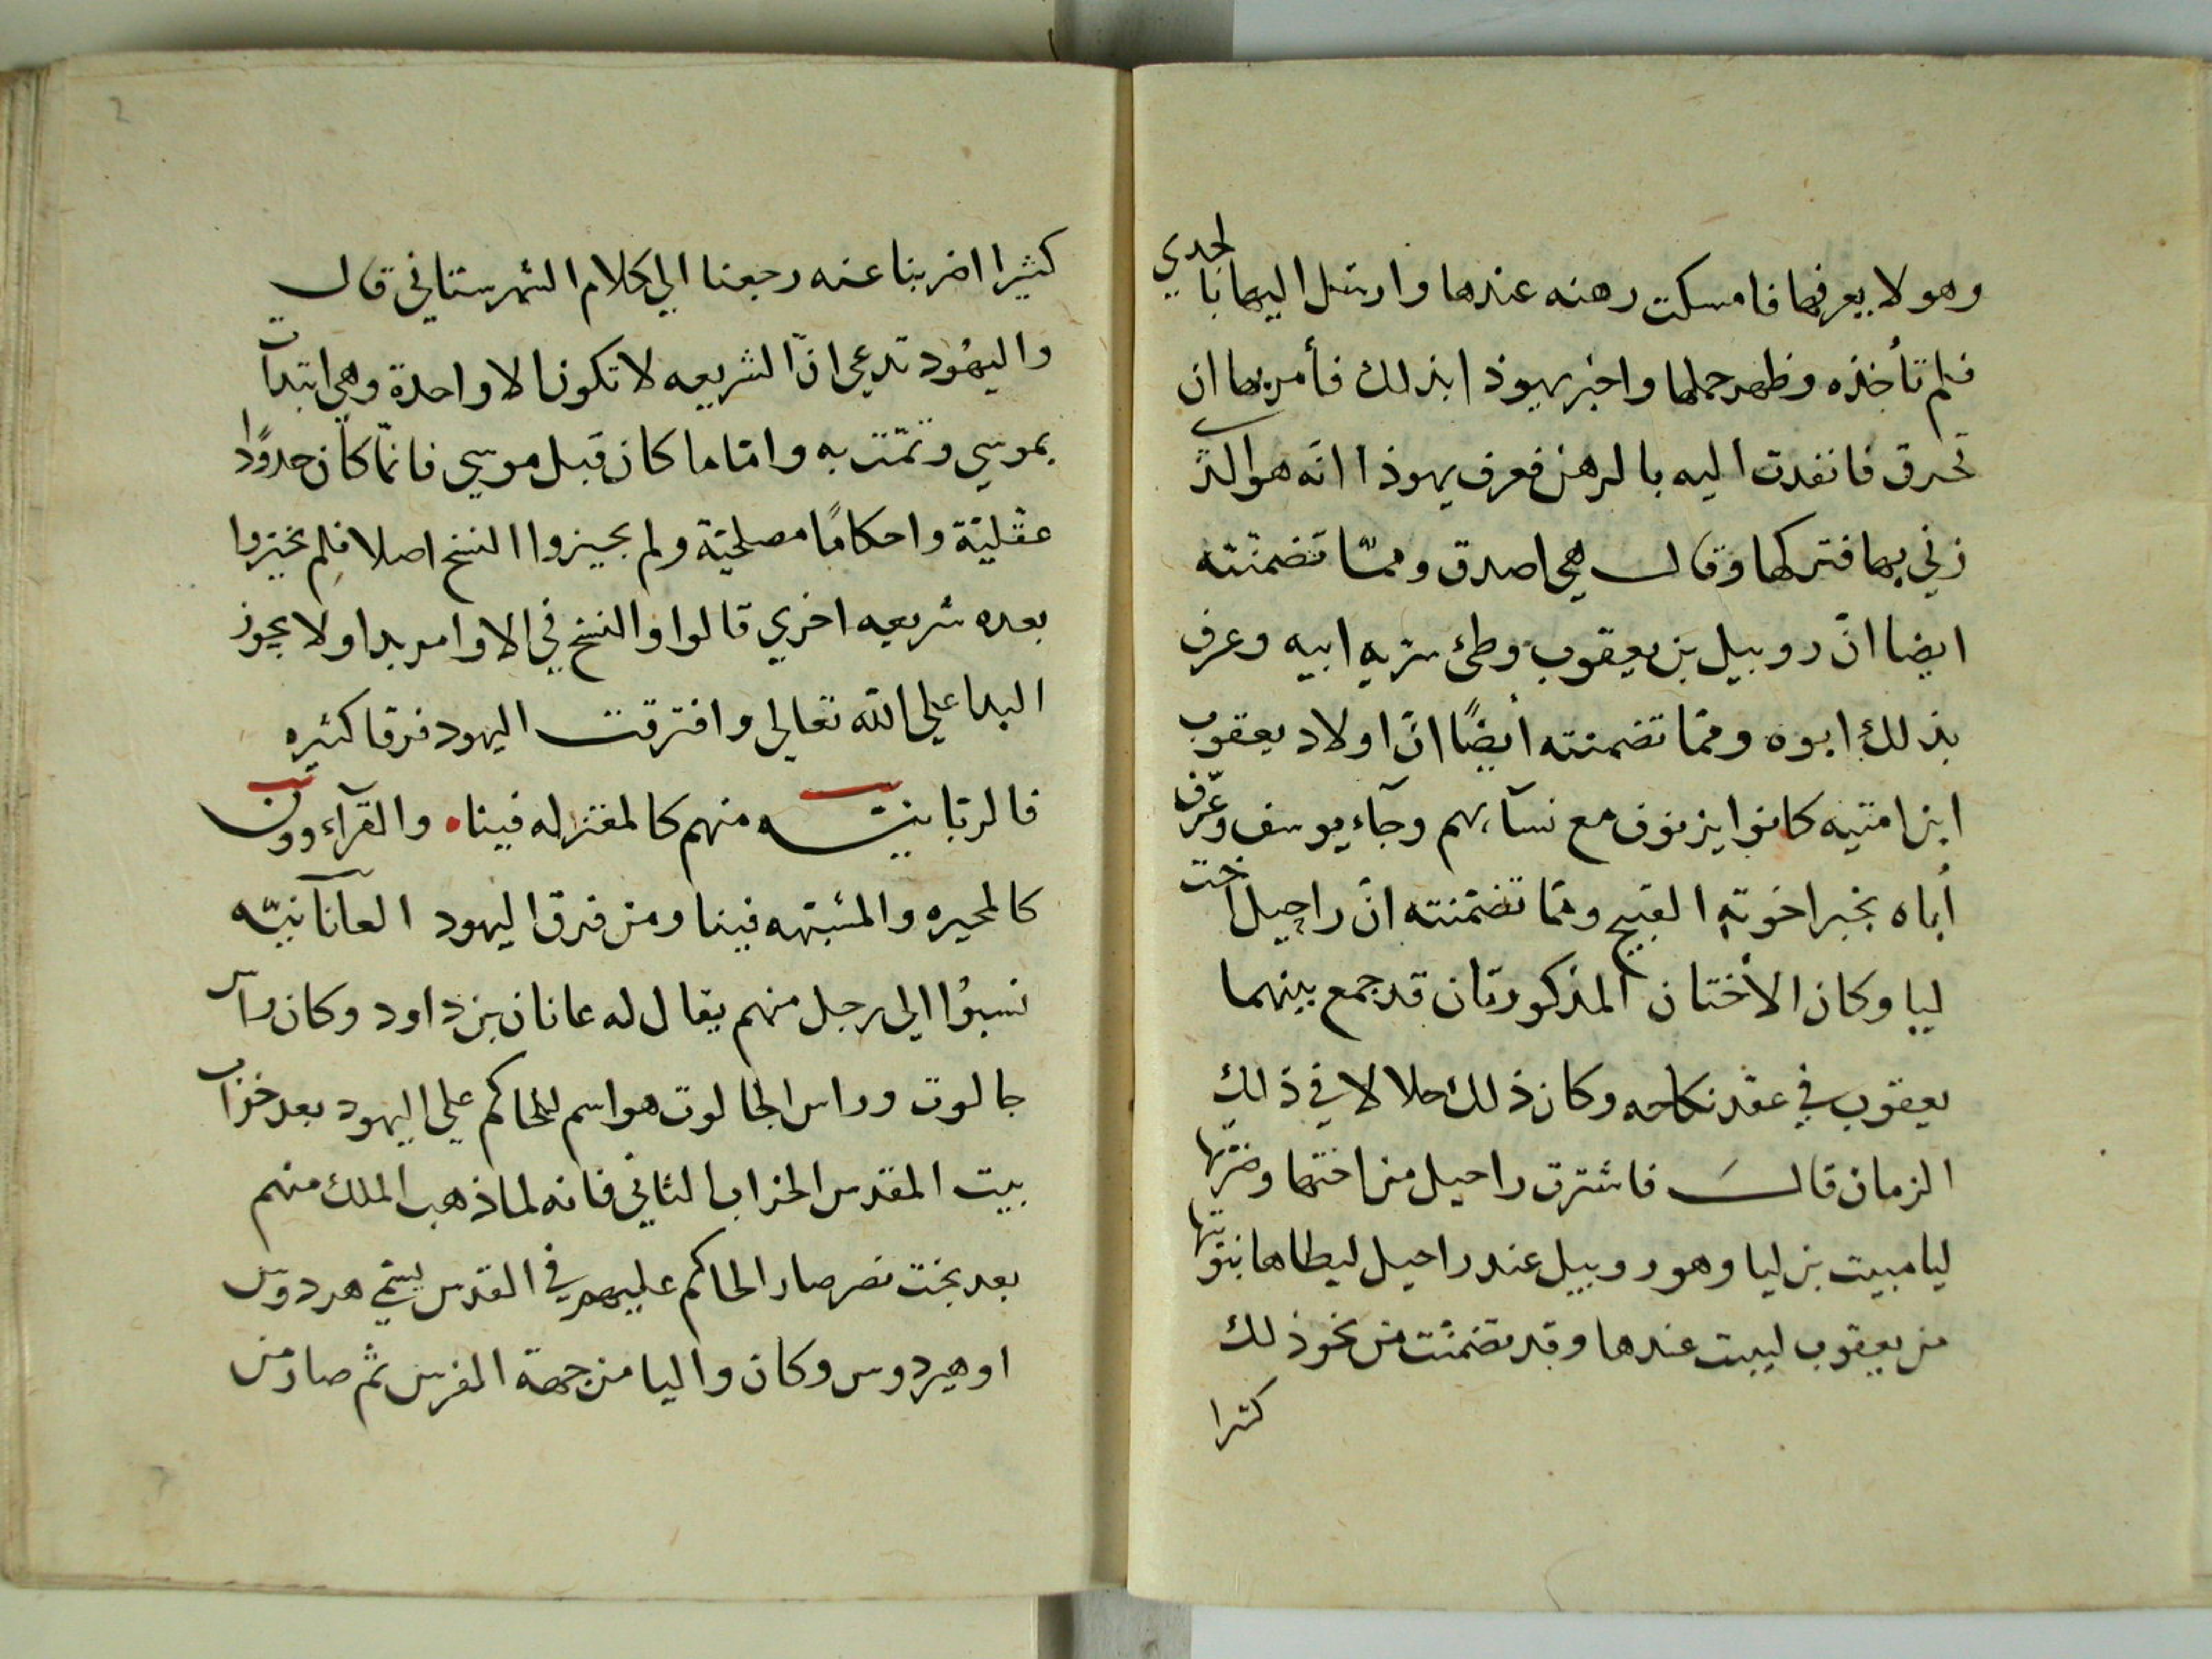 وهو لا يعرفها فامسكت رهنه عندها وارسل اليها بالجدي
فلم تأخذه وظهر حملها واخبر يهوذا بذلك فأمر بها ان
تحرق فانفدت اليه بالرهن فعرف يهوذا انّه هو الذي
زني بها فتركها وقال هي اصدق وممّا تضمنّته
ايضا انّ روبيل بن يعقوب وطئ سريه ابيه وعرف
بذلك ابوه وممّا تضمنته أيضًا انّ اولاد يعقوب
من امتيه كانوا يزنون مع نسآء ابيهم وجآء يوسف وعرّف
أباه بخبر اخوته القبيح وممّا تضمّنته انّ راحيل اخت
ليا وكان الأختان المذكورتان قد جمع بينهما
يعقوب في عقد نكاحه وكان ذلك حلالا في ذلك
الزمان قال فاشترت راحيل من اختها وضرّتها
ليا مبيت بن ليا وهو روبيل عند راحيل ليطاها بنوبتها
من يعقوب ليبيت عندها وقد تضمنّت من نحو ذلك
كثيرا
كثيرا اضربنا عنه رجعنا الي كلام الشهرستاني قال
واليهُود تدعي انّ الشريعه لا تكون الا واحدة وهي ابتدأت
بموسي وتمّت به وامّا ما كان قبل موسي فانّما كان حدودًا
عقليّة واحكامًا مصلحيّة ولم يجيزوا النسخ اصلا فلم يجيزوا
بعده شريعه اخري قالوا والنسخ في الاوامر بدا ولا يجوز
البدا علي الله تعالي وافترقت اليهود فرقا كثيره
فالربّانيّه منهم كالمعتزله فينا والقرّآءوون
كالمجبره والمشبّهه فينا ومن فرق اليهود العانانيّه
نسبوُا الي رجل منهم يقال له عانان بن داود وكان راس
جالوت وراس الجالوت هو اسم للحاكم علي اليهود بعد خراب
بيت المقدس الخراب الثاني فانه لما ذهب الملك منهم
بعد بخت نصر صار الحاكم عليهم في القدس يسمّي هردوس
او هيردوس وكان واليا من جهة الفرس ثم صار من